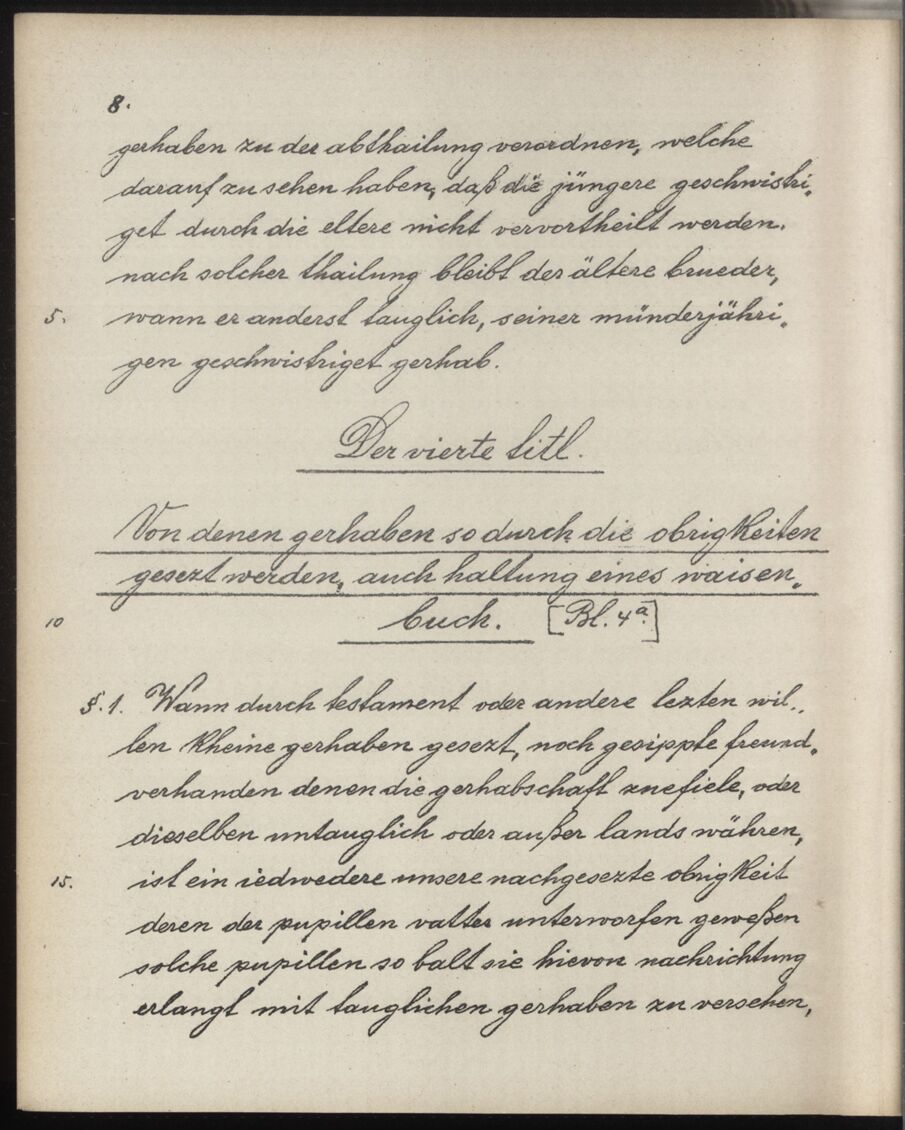 8.
gerhaben zu der abthailung verordnen, welche
darauf zu sehen haben, daß die jüngere geschwistri„
get durch die eltere nicht vervortheilt werden.
nach solcher thailung bleibt der ältere brueder,
5. wann er anderst tauglich, seiner münderjähri„
gen geschwistriget gerhab.
Der vierte titl.
Von denen gerhaben so durch die obrigkeiten
gesezt werden, auch haltung eines waisen„
10 buch. [Bl. 4a.]
§. 1. Wann durch testament oder andere lezten wil„
len kheine gerhaben gesezt, noch gesippte freund„
verhanden denen die gerhabschaft zuefiele, oder
dieselben untauglich oder außer lands währen,
15. ist ein iedwedere unsere nachgesezte obrigkeit
deren der pupillen vatter unterworfen geweßen
solche pupillen so balt sie hievon nachrichtung
erlangt mit tauglichen gerhaben zu versehen,